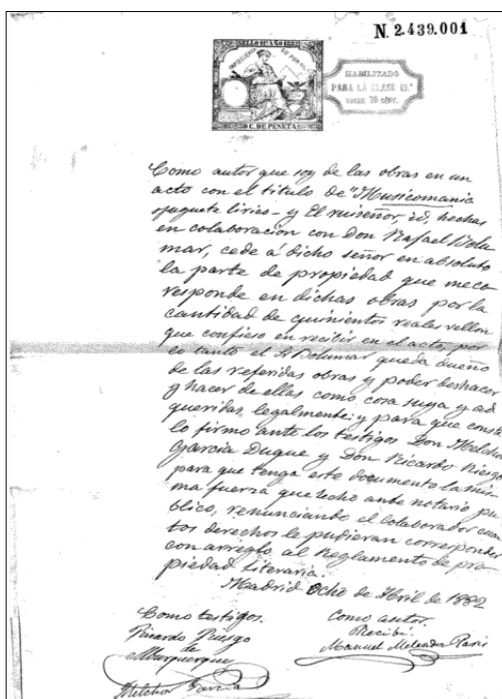 N. 2.439.001
SELLO 12º AÑO 1882
HABILITADO
PARA LA CLASE 12.ª
75 cént.
C. DE PESETA
Como autor que soy de las obras en un
acto con el titulo de "Musicomania
juguete lirico - y El ruiseñor, id. hechas
en colaboración con Don Rafael Bolu
mar, cede á dicho señor en absoluto
la parte de propiedad que me co
rresponde en dichas obras por la
cantidad de quinientos reales vellon
que confieso en recibir en el acto, por
lo tanto el Sr Bolumar queda dueño
de las referidas obras y poder deshacer
y hacer de ellas como cosa suya y ad
queridas, legalmente; y para que conste
lo firmo ante los testigos Don Melchor
Garcia Duque y Don Ricardo Riesgo
para que tenga este documento la mis
ma fuerza que hecho ante notario pu
blico, renunciando el colaborador cuan
tos derechos le pudieran corresponder
con arreglo al Reglamento de pro
piedad literaria.
Madrid Ocho de Abril de 1882
Como testigos.
Ricardo Riesgo
de
Alburquerque
Melchor Garcia
Como autor.
Recibi.
Manuel Melendez Paris